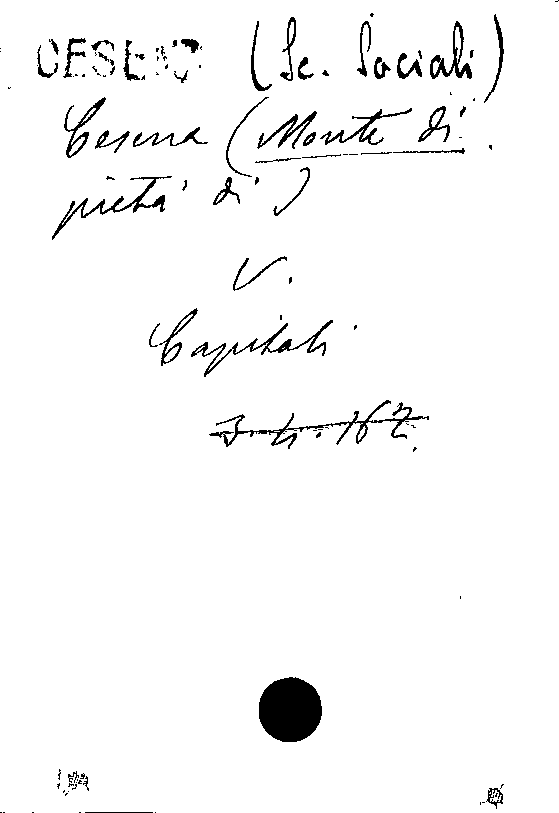 (Sc. Sociali)
Cesena (Monte di
pietà di)
V.
Capitali
3. 4. 162.